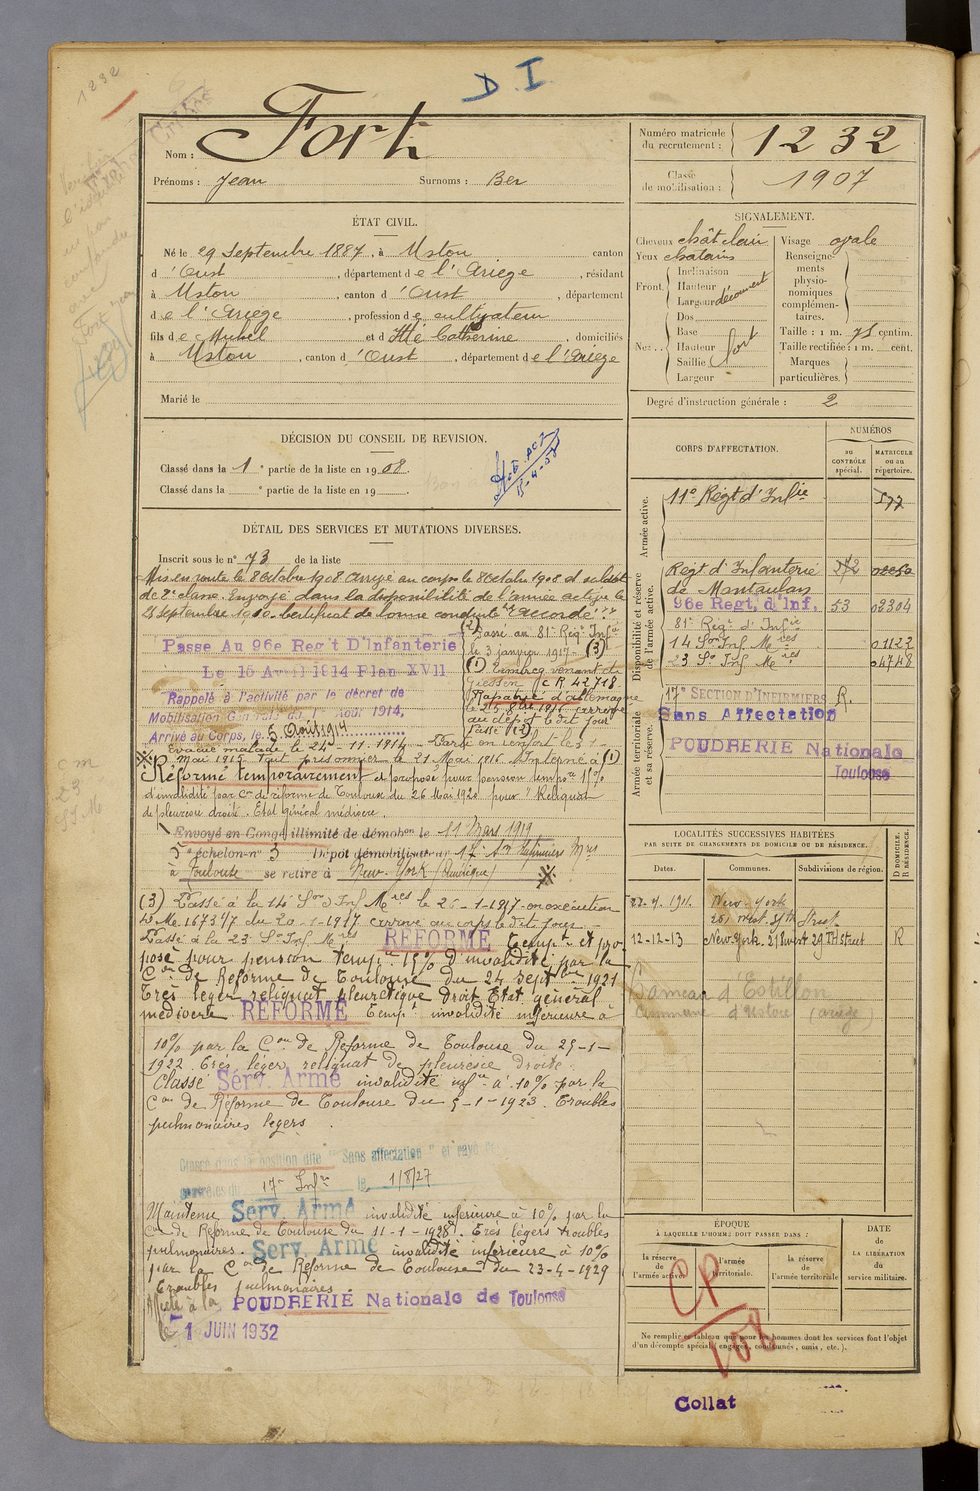 1232
D. I
Nom : Fort
Prénoms : Jean Surnoms : Ber
Numéro matricule du recrutement : 1232
Classe de mobilisation : 1907
ÉTAT CIVIL.
Né le 29 Septembre 1887, à Ustou canton
d'Oust, département de l'Ariège, résidant
à Ustou, canton d'Oust, département
de l'Ariège, profession de cultivateur
fils de Michel et d Catherine, domiciliés
à Ustou, canton d'Oust, département de l'Ariège
Marié le
SIGNALEMENT.
Cheveux chât clair Visage ovale
Yeux chatains
Front. Inclinaison
Hauteur
Largeur découvert
Nez. Dos
Base
Hauteur fort
Saillie
Largeur
Renseignements physionomiques complémentaires.
Taille : 1 m. 75 centim.
Taille rectifiée : 1 m. cent.
Marques particulières.
Degré d'instruction générale : 2
DÉCISION DU CONSEIL DE REVISION.
Classé dans la 1e partie de la liste en 1908.
Classé dans la e partie de la liste en 19
15-4-58
DÉTAIL DES SERVICES ET MUTATIONS DIVERSES.
Inscrit sous le n° 73 de la liste
Mis en route le 8 Octobre 1908 arrivé au corps le 8 Octobre 1908 et soldat
de 2e classe. Envoyé dans la disponibilité de l'armée active le
25 septembre 1910. Certificat de bonne conduite accordé.
Passe Au 96e Reg't D'Infanterie
Le 15 Avril 1914 Plan XVII
Rappelé à l'activité par le décret de
Mobilisation Générale du 1er Août 1914,
Arrivé au Corps, le 5 Août 1914
(2) Passé au 81e Régt Infie
le 3 janvier 1917 - (3)
(1) venant de
Giessen CR 42718
Rapatrié d'allemagne
au dépôt le dit jour
Passé (2)
Evacué malade le 24-11-1914 - Parti en renfort le 31
Mai 1915 Fait prisonnier le 21 Mai 1916 Interné à (1)
Réformé temporairement et proposé pour pension tempre 15%
d'invalidité par Con de réforme de Toulouse du 26 Mai 1920 pour "Reliquat
de pleurésie droite. Etat général médiocre.
Envoyé en Congé illimité de démobon le 11 Mars 1919
3e échelon n° 3 Dépôt démobilisateur 17e Son Infirmiers Mres
à Toulouse se retire à New-York (Amérique)
(3) Passé à la 14e Son d'Inf Mres le 26-1-1917 en exécution
Passé à la 23e Son Inf Mres REFORMÉ Tempre et pro
posé pour pension tempre 15% d'invalidité par la
Con de Réforme de Toulouse du 24 Septbre 1921
Très léger reliquat pleurétique droit Etat général
médiocre RÉFORMÉ Tempre invalidité inférieure à
10% par la Con de Réforme de Toulouse du 25-1-
1922 Très léger reliquat de pleurésie droite.
Classé Serv. Armé invalidité infre à 10% par la
Con de Réforme de Toulouse du 5-1-1923. Troubles
pulmonaires légers.
Classé dans la position dite "Sans affectation" et rayé des
contrôles du 17e Infre le 1/8/27
Maintenu Serv. Armé invalidité inférieure à 10% par la
Con de Réforme de Toulouse du 11-1-1928. Très légers troubles
pulmonaires. Serv. Armé invalidité inférieure à 10%
par la Con de Réforme de Toulouse du 23-4-1929
Troubles pulmonaires.
Affecté à la POUDRERIE Nationale de Toulouse
le 1 JUIN 1932
CORPS D'AFFECTATION.
NUMÉROS
au CONTRÔLE spécial.
MATRICULE ou au répertoire.
Armée active.
11e Régt d'Infie 577
Disponibilité et réserve de l'armée active.
Regt d'Infanterie
de Montauban
96e Regt, d'Inf. 53 02304
81e Régt d'Infie
14 Son Inf Mres 01122
23 Son Inf Mres 04748
Armée territoriale et sa réserve.
17e SECTION D'INFIRMIERS R.
Sans Affectation
POUDRERIE Nationale
Toulouse
LOCALITÉS SUCCESSIVES HABITÉES
PAR SUITE DE CHANGEMENTS DE DOMICILE OU DE RÉSIDENCE.
Dates. Communes. Subdivisions de région. D DOMICILE. R RÉSIDENCE.
New-York
Street
12-12-13 New-York. 218 West 29TH Street R
Hameau d'Estillon
Commune d'Ustou (ariège)
ÉPOQUE
À LAQUELLE L'HOMME DOIT PASSER DANS :
la réserve de l'armée active.
l'armée territoriale.
la réserve de l'armée territoriale
DATE de LA LIBÉRATION du service militaire.
CP
108
Ne remplir ce tableau que pour les hommes dont les services font l'objet
d'un décompte spécial (engagés, commués, omis, etc.).
Collat